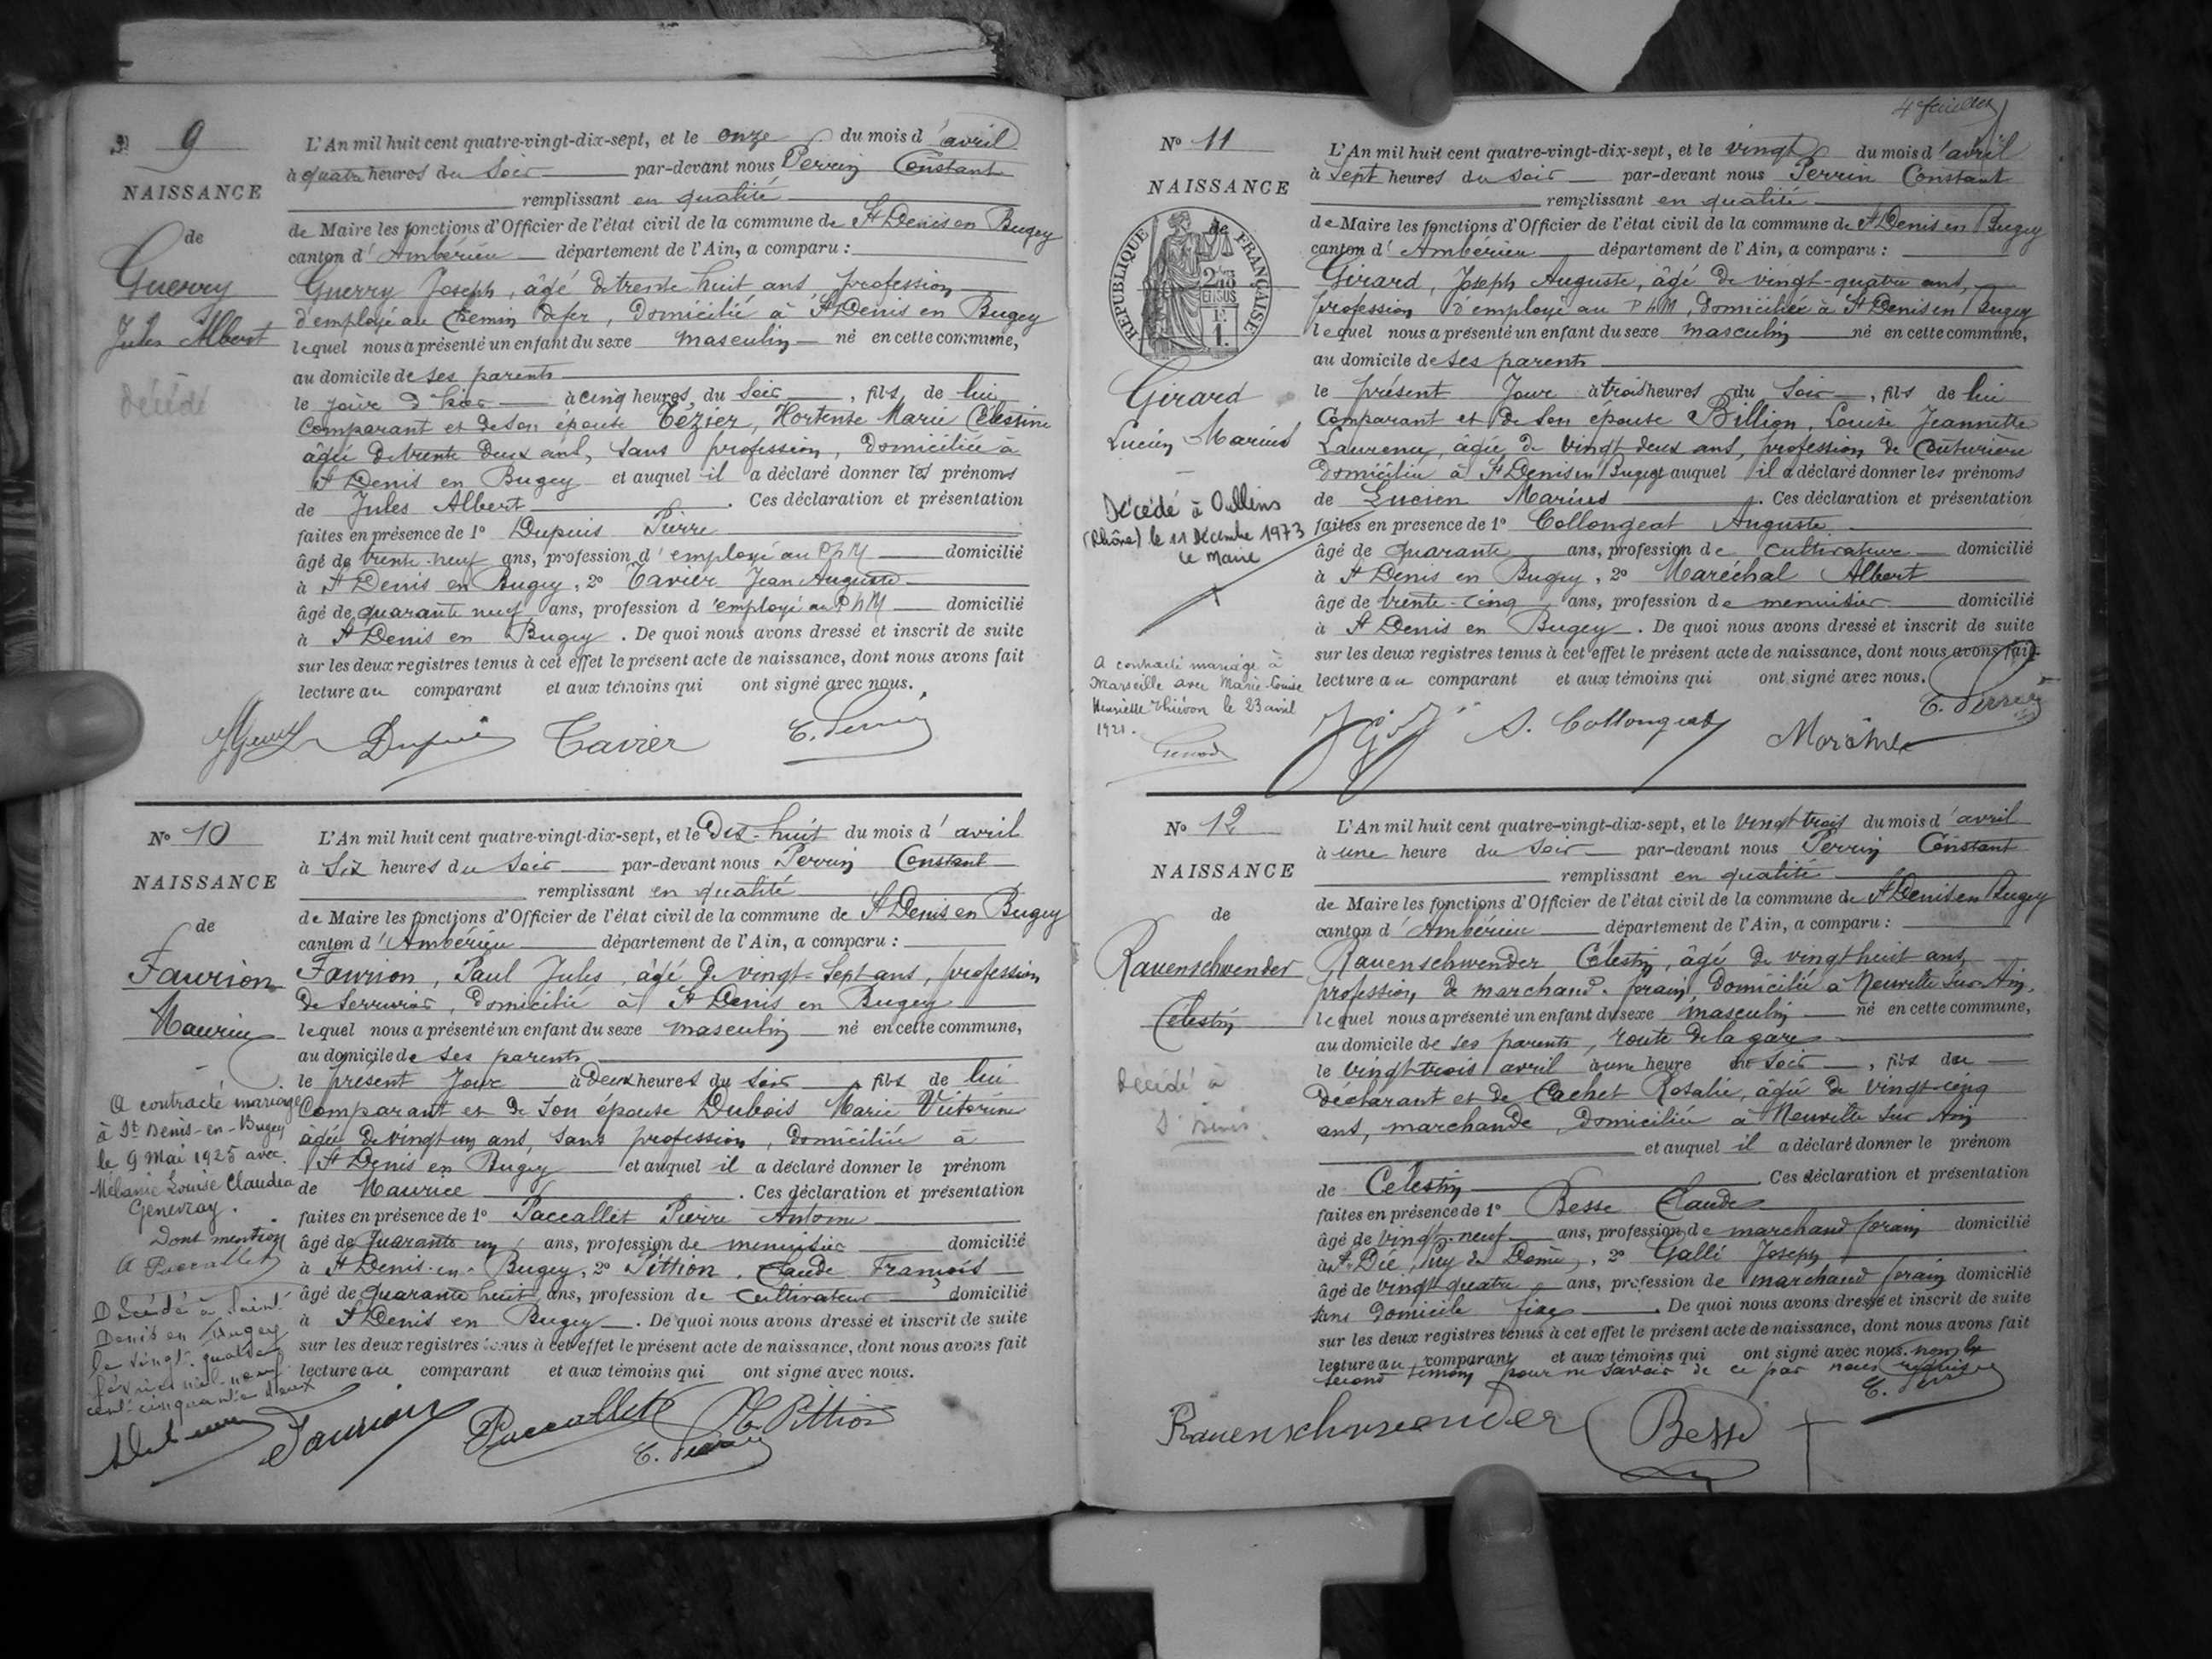 9
NAISSANCE
de
Guerry
Jules Albert
Décédé
L'An mil huit cent quatre-vingt-dix-sept, et le onze du mois d'avril
à quatre heures du soir par-devant nous Perrin Constant
remplissant en qualité
de Maire les fonctions d'Officier de l'état civil de la commune de St Denis en Bugey
canton d'Ambérieu département de l'Ain, a comparu :
Guerry Joseph, âgé de trente huit ans, profession
d'employé au chemin de fer, domicilié à St Denis en Bugey
lequel nous a présenté un enfant du sexe masculin né en cette commune,
au domicile de ses parents
le jour d'hier à cinq heures du soir, fils de lui
comparant et de son épouse Tézier, Hortense Marie Célestine
âgée de trente deux ans, sans profession, domiciliée à
St Denis en Bugey et auquel il a déclaré donner les prénoms
de Jules Albert. Ces déclaration et présentation
faites en présence de 1° Dupuis Pierre
âgé de trente-neuf ans, profession d'employé au PLM domicilié
à St Denis en Bugey, 2° Tavier Jean Auguste
âgé de quarante neuf ans, profession d'employé au PLM domicilié
à St Denis en Bugey. De quoi nous avons dressé et inscrit de suite
sur les deux registres tenus à cet effet le présent acte de naissance, dont nous avons fait
lecture au comparant et aux témoins qui ont signé avec nous.
Dupuis Tavier C. Perrin
N° 10
NAISSANCE
de
Faurion
Maurice
A contracté mariage
à St Denis-en-Bugey
le 9 Mai 1925 avec
Mélanie Louise Claudia
Genevray.
Dont mention
A Paccallet
Décédé à Saint
Denis en Bugey
le vingt-quatre
février mil neuf
cent cinquante deux
L'An mil huit cent quatre-vingt-dix-sept, et le Dix-huit du mois d'avril
à six heures du soir par-devant nous Perrin Constant
remplissant en qualité
de Maire les fonctions d'Officier de l'état civil de la commune de St Denis en Bugey
canton d'Ambérieu département de l'Ain, a comparu :
Faurion, Paul Jules, âgé de vingt-sept ans, profession
de serrurier, domicilié à St Denis en Bugey
lequel nous a présenté un enfant du sexe masculin né en cette commune,
au domicile de ses parents
le présent jour à deux heures du soir, fils de lui
comparant et de son épouse Dubois Marie Victorine
âgée de vingt un ans, sans profession, domiciliée à
St Denis en Bugey et auquel il a déclaré donner le prénom
de Maurice. Ces déclaration et présentation
faites en présence de 1° Paccallet Pierre Antoine
âgé de quarante un ans, profession de menuisier domicilié
à St Denis-en-Bugey, 2° Pittion, Claude François
âgé de quarante huit ans, profession de cultivateur domicilié
à St Denis en Bugey. De quoi nous avons dressé et inscrit de suite
sur les deux registres tenus à cet effet le présent acte de naissance, dont nous avons fait
lecture au comparant et aux témoins qui ont signé avec nous.
Faurion Paccallet Pittion
C. Perrin
4e feuillet
N° 11
NAISSANCE
de
RÉPUBLIQUE FRANÇAISE
Girard
Lucien Marius
Décédé à Oullins
(Rhône) le 11 Décembre 1973
Le Maire
A contracté mariage à
Marseille avec Marie-Louise
Henriette Thiévon le 23 avril
1921.
L'An mil huit cent quatre-vingt-dix-sept, et le vingt du mois d'avril
à sept heures du soir par-devant nous Perrin Constant
remplissant en qualité
de Maire les fonctions d'Officier de l'état civil de la commune de St Denis en Bugey
canton d'Ambérieu département de l'Ain, a comparu :
Girard, Joseph Auguste, âgé de vingt-quatre ans,
profession d'employé au PLM, domicilié à St Denis en Bugey
lequel nous a présenté un enfant du sexe masculin né en cette commune,
au domicile de ses parents
le présent jour à trois heures du soir, fils de lui
comparant et de son épouse Billion, Louise Jeannette
Laurence, âgée de vingt deux ans, profession de couturière
domiciliée à St Denis en Bugey et auquel il a déclaré donner les prénoms
de Lucien Marius. Ces déclaration et présentation
faites en présence de 1° Collongeat Auguste
âgé de quarante ans, profession de cultivateur domicilié
à St Denis en Bugey, 2° Maréchal Albert
âgé de trente-cinq ans, profession de menuisier domicilié
à St Denis en Bugey. De quoi nous avons dressé et inscrit de suite
sur les deux registres tenus à cet effet le présent acte de naissance, dont nous avons fait
lecture au comparant et aux témoins qui ont signé avec nous.
C. Perrin
A. Collongeat Maréchal
N° 12
NAISSANCE
de
Rauenschwender
Célestin
Décédé à
St Denis.
L'An mil huit cent quatre-vingt-dix-sept, et le vingt trois du mois d'avril
à une heure du soir par-devant nous Perrin Constant
remplissant en qualité
de Maire les fonctions d'Officier de l'état civil de la commune de St Denis en Bugey
canton d'Ambérieu département de l'Ain, a comparu :
Rauenschwender Célestin, âgé de vingt huit ans,
profession de marchand forain, domicilié à Neuville sur Ain,
lequel nous a présenté un enfant du sexe masculin né en cette commune,
au domicile de ses parents, route de la gare
le vingt-trois avril à une heure du soir, fils du
déclarant et de Cachet Rosalie, âgée de vingt-cinq
ans, marchande, domiciliée à Neuville sur Ain
et auquel il a déclaré donner le prénom
de Célestin Ces déclaration et présentation
faites en présence de 1° Besse Claude
âgé de vingt-neuf ans, profession de marchand forain domicilié
à St Dié, Puy de Dôme, 2° Galli Joseph
âgé de vingt quatre ans, profession de marchand forain domicilié
sans domicile fixe. De quoi nous avons dressé et inscrit de suite
sur les deux registres tenus à cet effet le présent acte de naissance, dont nous avons fait
lecture au comparant et aux témoins qui ont signé avec nous. non le
second témoin pour ne savoir de ce par nous requis
C. Perrin
Rauenschwender Besse